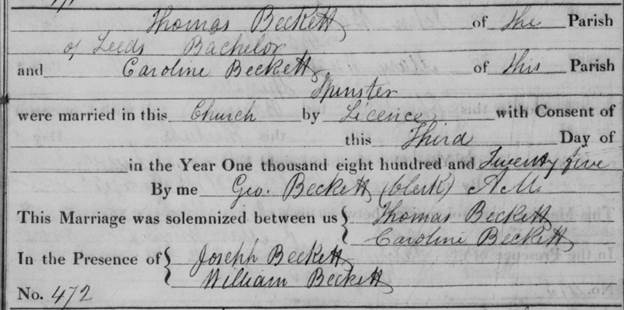 Thomas Beckett of the Parish
of Leeds Bachelor
and Caroline Beckett of this Parish
Spinster
were married in this Church by Licence with Consent of
this Third Day of
in the Year One thousand eight hundred and Twenty five
By me Geo. Beckett (Clerk) A.M.
This Marriage was solemnized between us { Thomas Beckett
Caroline Beckett
In the Presence of { Joseph Beckett
William Beckett
No. 472